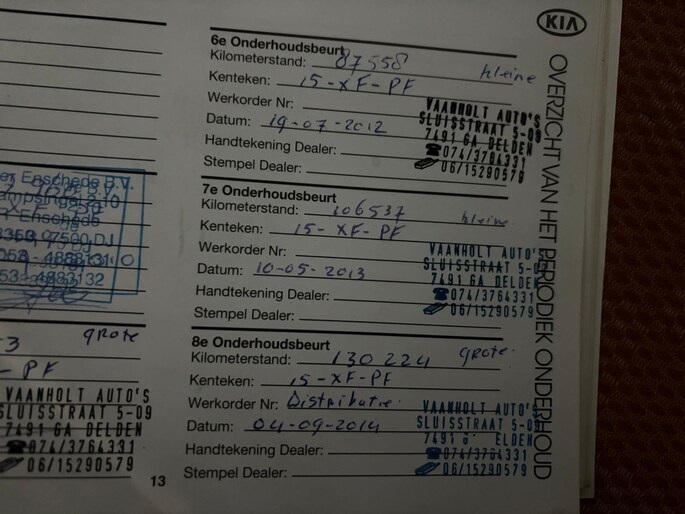 KIA
OVERZICHT VAN HET PERIODIEK ONDERHOUD
6e Onderhoudsbeurt
Kilometerstand: 87558 kleine
Kenteken: 15-XF-PF
Werkorder Nr:
Datum: 19-07-2012
Handtekening Dealer:
Stempel Dealer:
VAANHOLT AUTO'S
SLUISSTRAAT 5-09
7491 GA DELDEN
074/3764331
06/15290579
7e Onderhoudsbeurt
Kilometerstand: 106537 kleine
Kenteken: 15-XF-PF
Werkorder Nr:
Datum: 10-05-2013
Handtekening Dealer:
Stempel Dealer:
VAANHOLT AUTO'S
SLUISSTRAAT 5-09
7491 GA DELDEN
074/3764331
06/15290579
8e Onderhoudsbeurt
Kilometerstand: 130224 grote
Kenteken: 15-XF-PF
Werkorder Nr: Distributie
Datum: 04-09-2014
Handtekening Dealer:
Stempel Dealer:
VAANHOLT AUTO'S
SLUISSTRAAT 5-09
7491 ELDEN
074/3764331
06/15290579
Enschede B.V.
Enschede
7500 DJ
053 - 4883132
3 grote
-PF
VAANHOLT AUTO'S
SLUISSTRAAT 5-09
7491 GA DELDEN
074/3764331
06/15290579
13